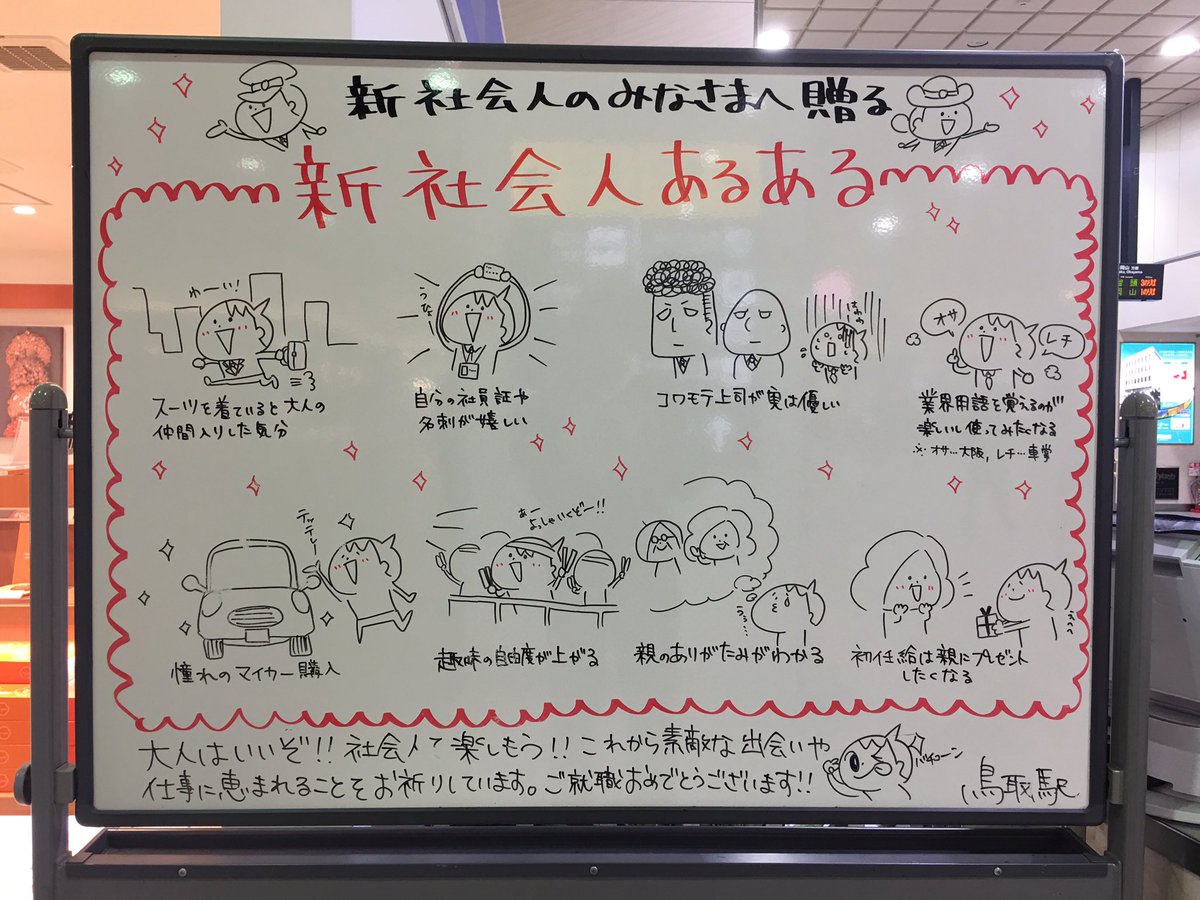 新社会人のみなさまへ贈る
新社会人あるある
わーい!
スーツを着ていると大人の
仲間入りした気分
自分の社員証や
名刺が嬉しい
コワモテ上司が実は優しい
オサ
レチ
業界用語を覚えるのが
楽しいし使ってみたくなる
※オサ…大阪, レチ…車掌
テッテレー
憧れのマイカー購入
あー
よっしゃいくぞー!!
趣味の自由度が上がる
親のありがたみがわかる
初任給は親にプレゼント
したくなる
大人はいいぞ!! 社会人で楽しもう!! これから素敵な出会いや
仕事に恵まれることをお祈りしています。ご就職おめでとうございます!!
バチコーン
鳥取駅